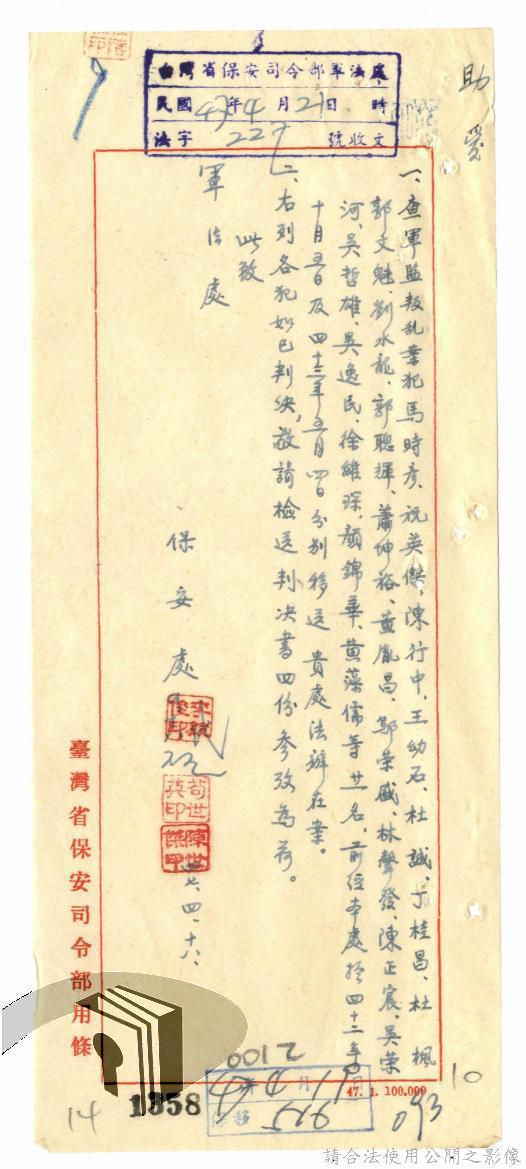 台灣省保安司令部軍法處
民國47年4月21日 時
法字 227 號收文
助
一、查軍監叛乱案犯馬時彥、祝英傑、陳行中、王幼石、杜誠、丁桂昌、杜楓
郭文魁、劉水龍、郭聰輝、蕭坤裕、黃胤昌、鄔荣盛、林聲發、陳正宸、吳荣
河、吳哲雄、吳逸民、徐維琛、顏錦華、黃藻儒等廿一名，前經本處於四十二年
十月五日及四十三年五月四日分别移送 貴處法辦在案。
二、右列各犯如已判决，敬請檢送判决書四份参攷為荷。
此致
軍法處
保安處
荀世英印
陳世傑甲
四、十八、
臺灣省保安司令部用條
0012
47. 1. 100.000
1358
14
10
093
請合法使用公開之影像